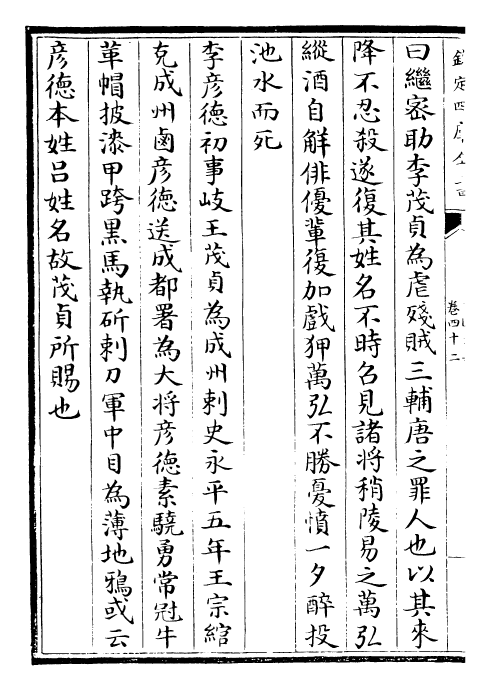 欽定四庫全書
卷四十二
曰繼密助李茂貞為虐殘賊三輔唐之罪人也以其來
降不忍殺遂復其姓名不時召見諸將稍陵易之萬弘
縱酒自解俳優輩復加戲狎萬弘不勝憂憤一夕醉投
池水而死
李彦德初事岐王茂貞為成州刺史永平五年王宗綰
克成州鹵彦德送成都署為大将彦德素驍勇常冠牛
革帽披漆甲跨黒馬執斫刺刀軍中目為薄地鴉或云
彦德本姓吕姓名故茂貞所賜也